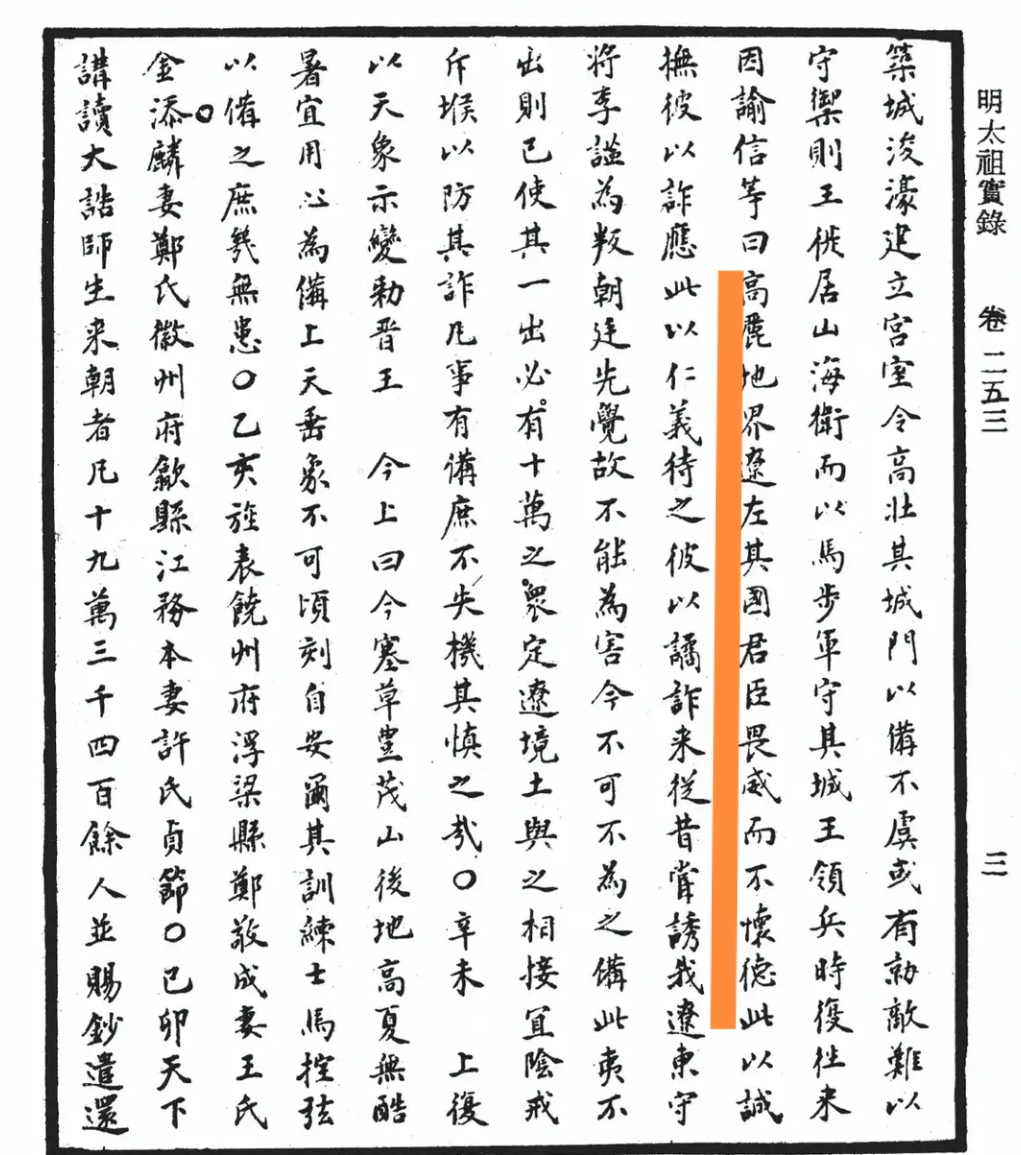 明太祖實錄 卷二五三 三
築城浚濠建立宮室令高壯其城門以備不虞或有勍敵難以
守禦則王徙居山海衛而以馬步軍守其城王領兵時復往来
因諭信等曰高麗地界遼左其國君臣畏威而不懷德此以誠
撫彼以詐應此以仁義待之彼以譎詐来従昔嘗誘我遼東守
將李謚為叛朝廷先覺故不能為害今不可不為之備此夷不
出則已使其一出必有十萬之衆定遼境土與之相接宜陰戒
斥堠以防其詐凢事有備庶不失機其慎之㢤○辛未 上復
以天象示變勑晋王 今上曰今塞草豊茂山後地高夏無酷
暑宜用心為備上天垂象不可頃刻自安爾其訓練士馬控弦
以備之庶幾無患○乙亥旌表饒州府浮梁縣鄭敬成妻王氏
金添麟妻鄭氏徽州府歙縣江務本妻許氏貞節○己卯天下
講讀大誥師生来朝者凢十九萬三千四百餘人並賜鈔遣還